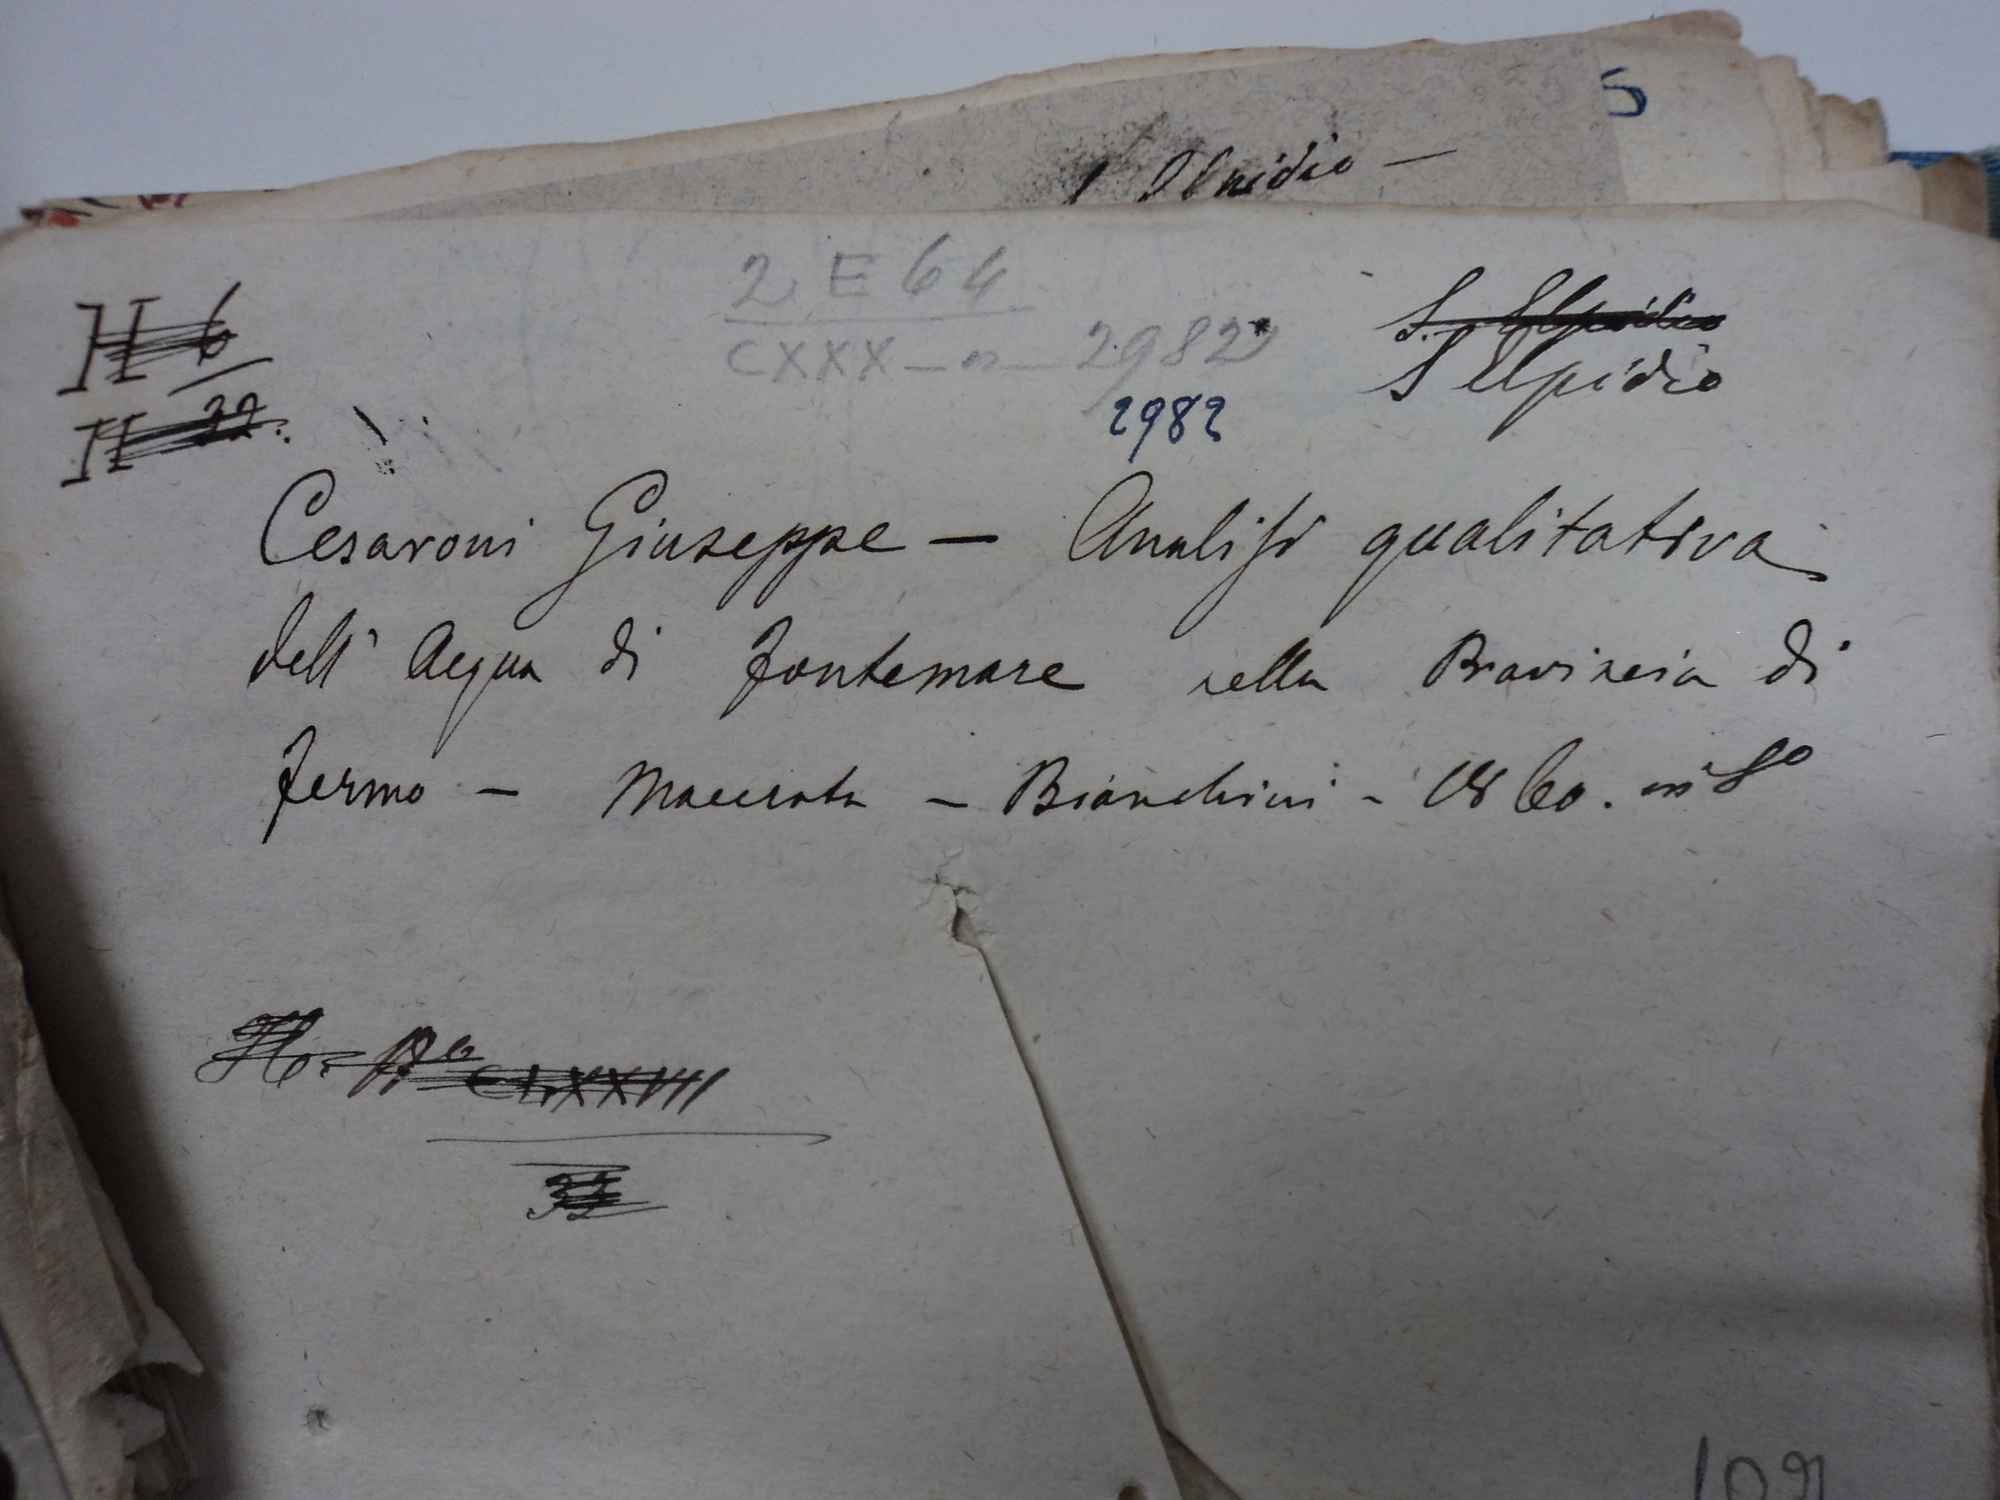 5
Elpidio —
H 6
2 E 64
S. Elpidio
CXXX - n - 2982
S Elpidio
H 32.
2982
Cesaroni Giuseppe — Analisi qualitativa
dell' Acqua di Fontemare nella Provincia di
Fermo — Macerata — Bianchini - 1860. in 8º
CLXXVIII
32
109